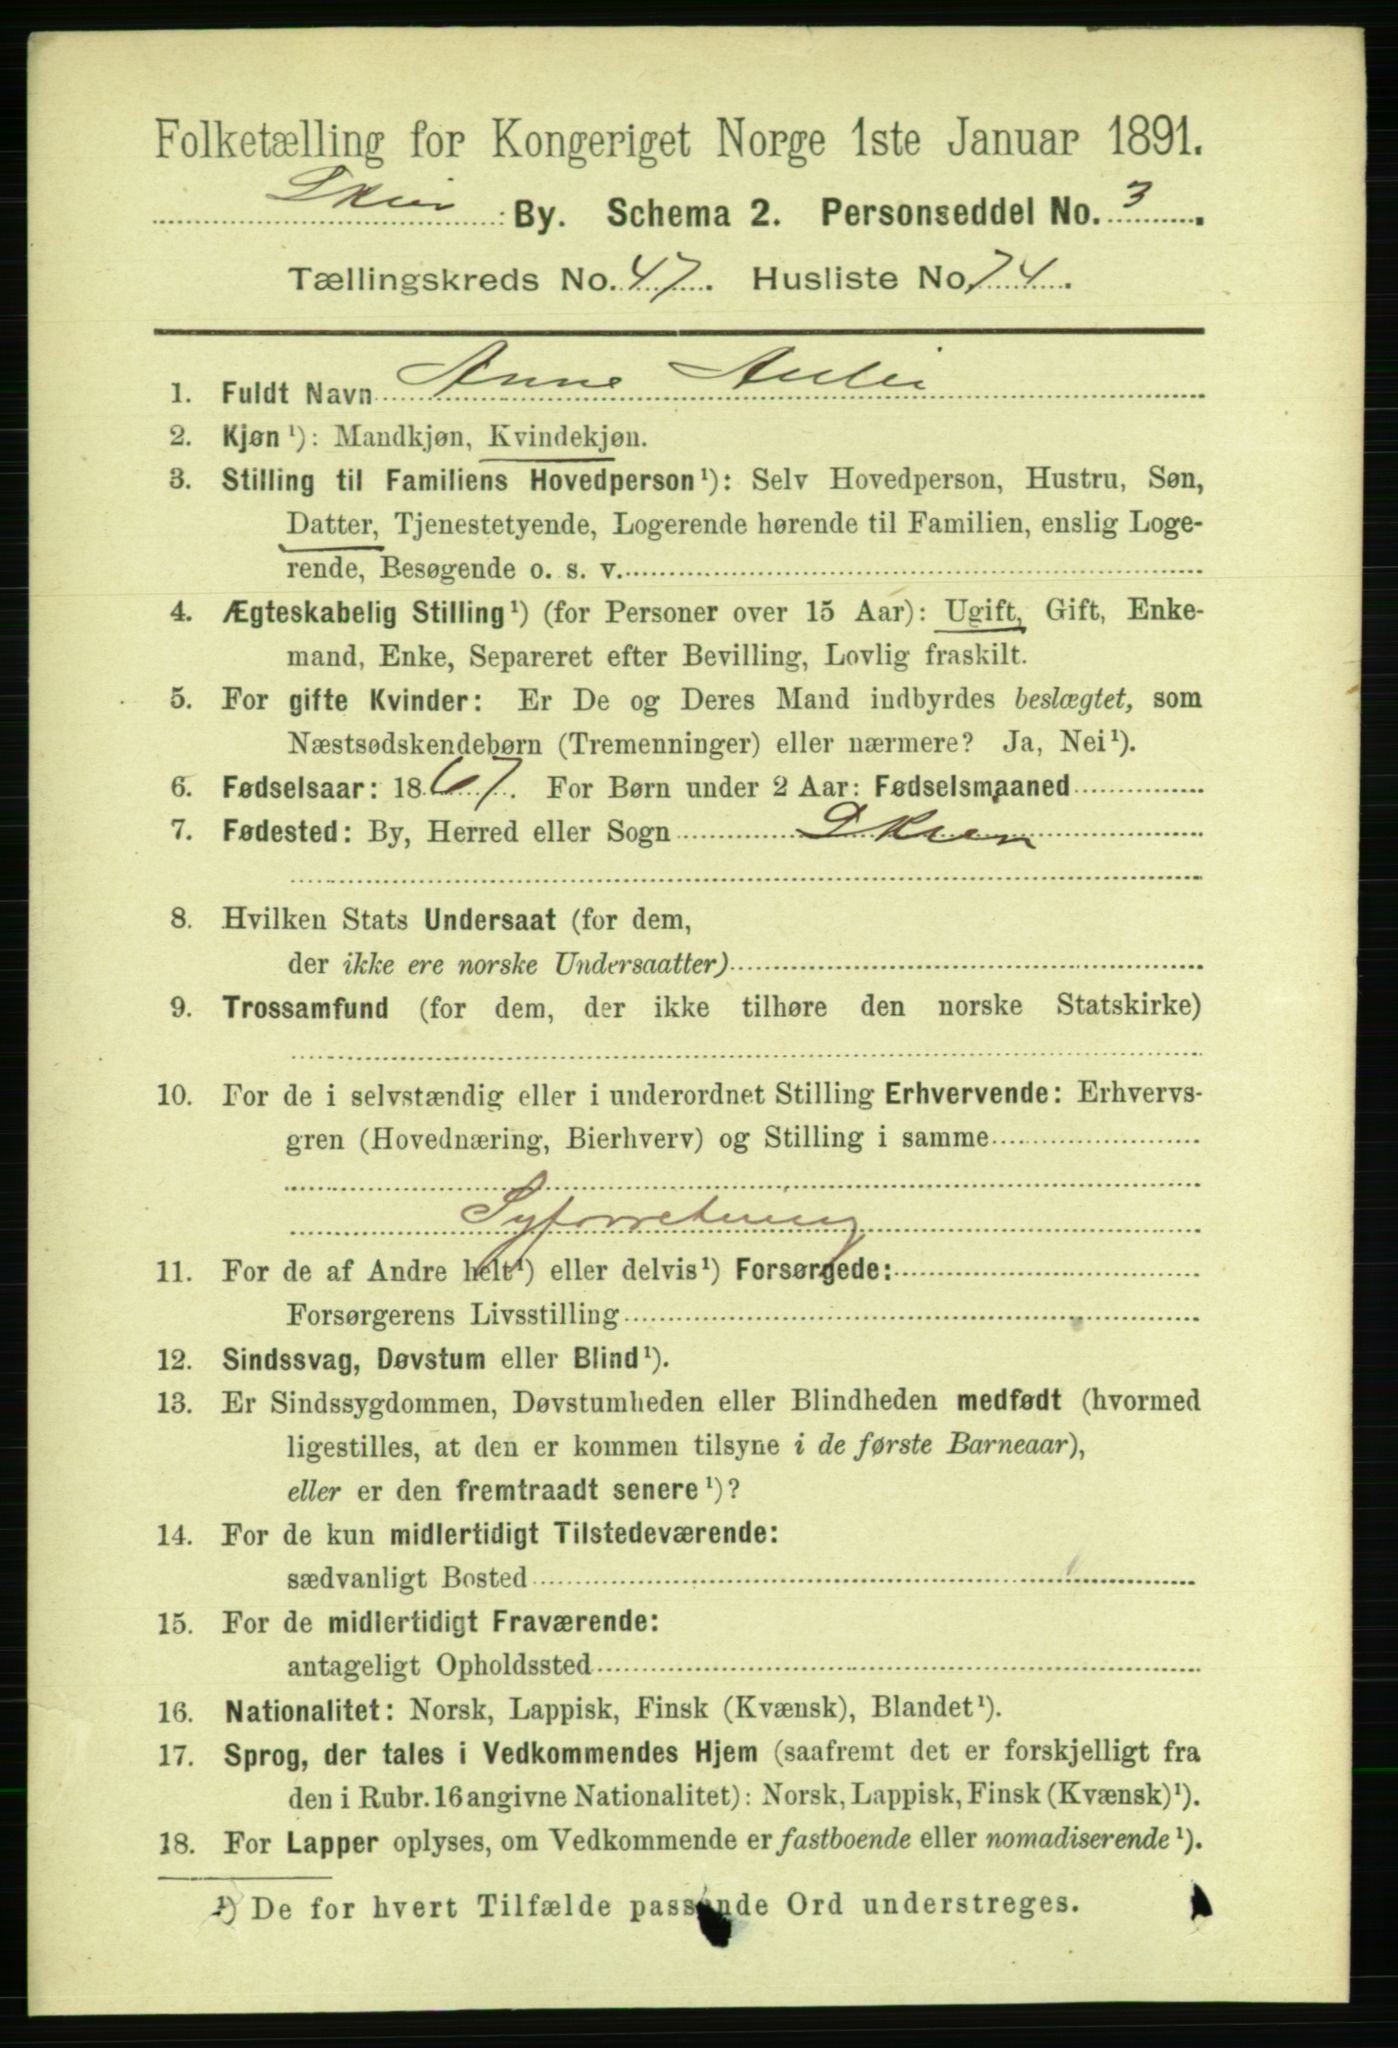 Folketælling for Kongeriget Norge 1ste Januar 1891.
Skien By. Schema 2. Personseddel No. 3.
Tællingskreds No. 47. Husliste No. 74.
1. Fuldt Navn Anne
2. Kjøn¹): Mandkjøn, Kvindekjøn.
3. Stilling til Familiens Hovedperson¹): Selv Hovedperson, Hustru, Søn,
Datter, Tjenestetyende, Logerende hørende til Familien, enslig Loge-
rende, Besøgende o. s. v.
4. Ægteskabelig Stilling¹) (for Personer over 15 Aar): Ugift, Gift, Enke-
mand, Enke, Separeret efter Bevilling, Lovlig fraskilt.
5. For gifte Kvinder: Er De og Deres Mand indbyrdes beslægtet, som
Næstsødskendebørn (Tremenninger) eller nærmere? Ja, Nei¹).
6. Fødselsaar: 1867. For Børn under 2 Aar: Fødselsmaaned
7. Fødested: By, Herred eller Sogn Skien
8. Hvilken Stats Undersaat (for dem,
der ikke ere norske Undersaatter)
9. Trossamfund (for dem, der ikke tilhøre den norske Statskirke)
10. For de i selvstændig eller i underordnet Stilling Erhvervende: Erhvervs-
gren (Hovednæring, Bierhverv) og Stilling i samme
Syforretning
11. For de af Andre helt¹) eller delvis¹) Forsørgede:
Forsørgerens Livsstilling
12. Sindssvag, Døvstum eller Blind¹).
13. Er Sindssygdommen, Døvstumheden eller Blindheden medfødt (hvormed
ligestilles, at den er kommen tilsyne i de første Barneaar),
eller er den fremtraadt senere¹)?
14. For de kun midlertidigt Tilstedeværende:
sædvanligt Bosted
15. For de midlertidigt Fraværende:
antageligt Opholdssted
16. Nationalitet: Norsk, Lappisk, Finsk (Kvænsk), Blandet¹).
17. Sprog, der tales i Vedkommendes Hjem (saafremt det er forskjelligt fra
den i Rubr. 16 angivne Nationalitet): Norsk, Lappisk, Finsk (Kvænsk)¹).
18. For Lapper oplyses, om Vedkommende er fastboende eller nomadiserende¹).
¹) De for hvert Tilfælde passende Ord understreges.